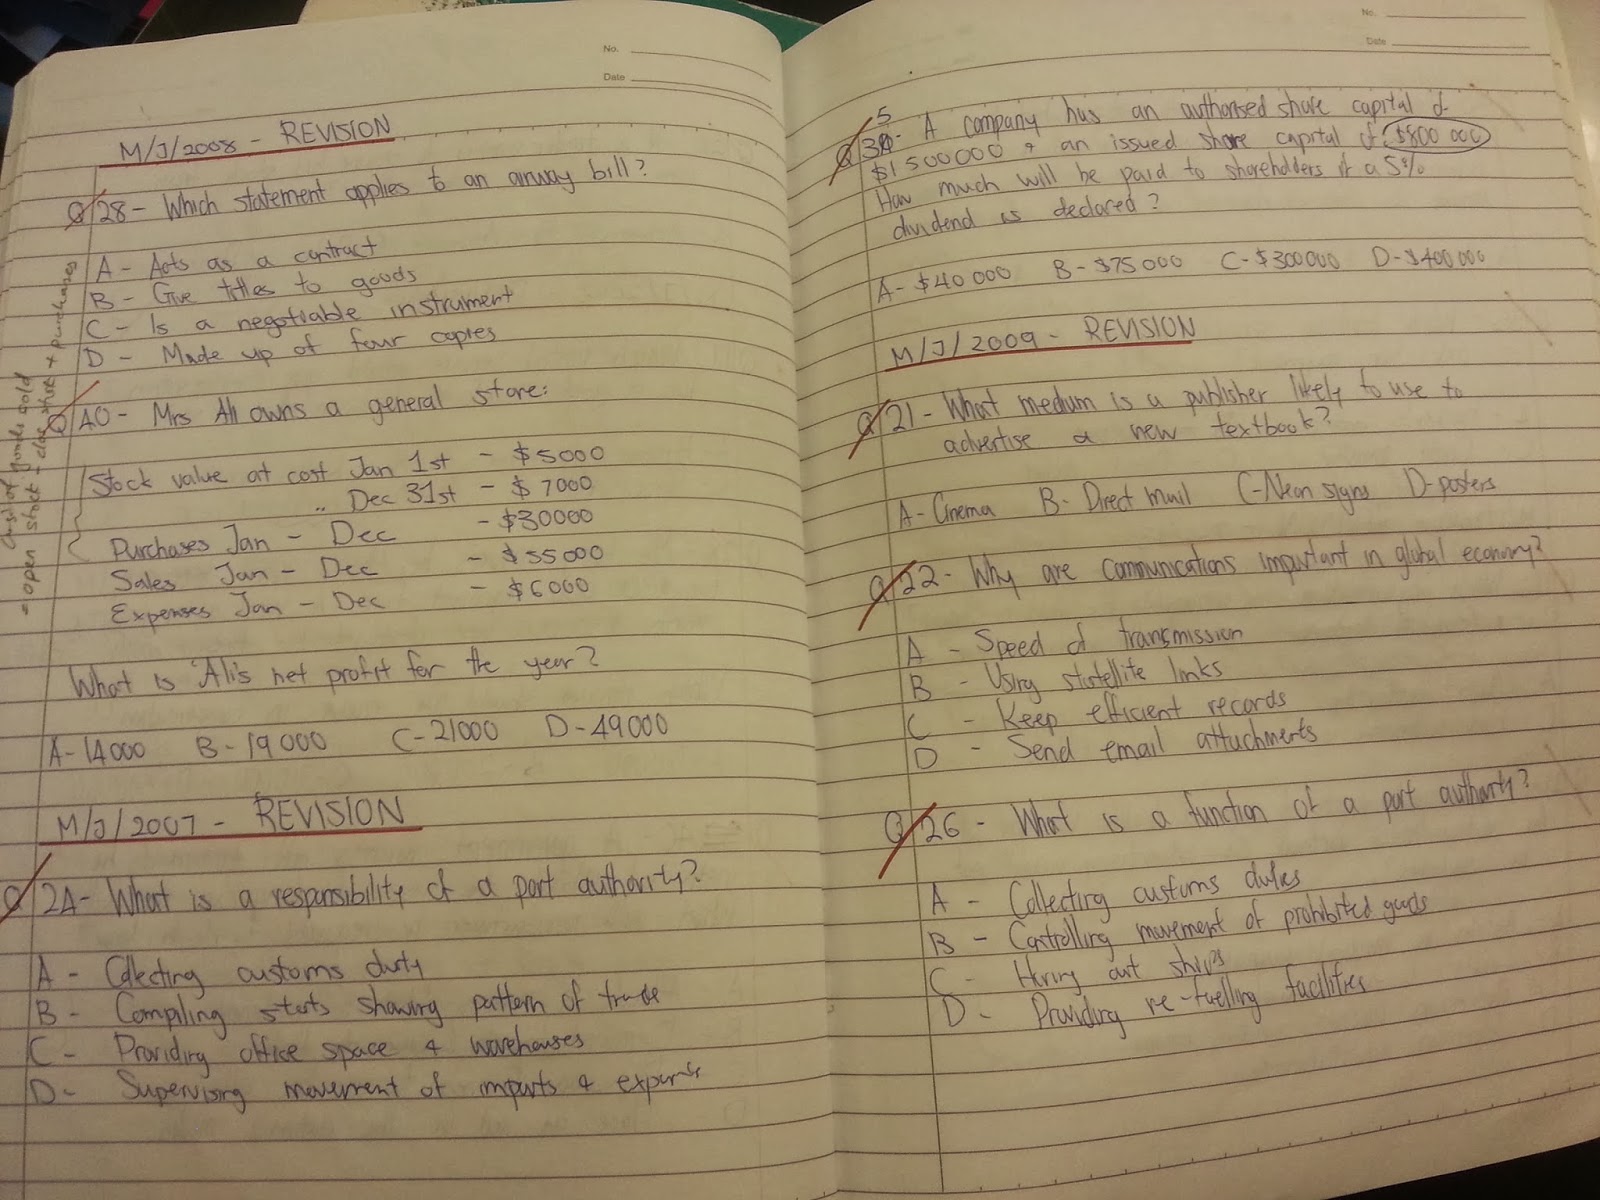 No.
Date
M/J/2008 - REVISION
Q28 - Which statement applies to an airway bill?
A - Acts as a contract
B - Give titles to goods
C - Is a negotiable instrument
D - Made up of four copies
Q40 - Mrs Ali owns a general store:
Stock value at cost Jan 1st - $5000
.. Dec 31st - $7000
Purchases Jan - Dec - $30000
Sales Jan - Dec - $55000
Expenses Jan - Dec - $6000
What is Ali's net profit for the year?
A - 14000 B - 19000 C - 21000 D - 49000
cost of goods sold
= open stock - clos stock + purchases
M/J/2007 - REVISION
Q24 - What is a responsibility of a port authority?
A - Collecting customs duty
B - Compiling stats showing pattern of trade
C - Providing office space & warehouses
D - Supervising movement of imports & exports
No.
Date
Q35 - A company has an authorised share capital of
$1500000 & an issued share capital of $800 000
How much will be paid to shareholders if a 5%
dividend is declared?
A - $40 000 B - $75000 C - $300000 D - $400000
M/J/2009 - REVISION
Q21 - What medium is a publisher likely to use to
advertise a new textbook?
A - Cinema B - Direct mail C - Neon signs D - posters
Q22 - Why are communications important in global economy?
A - Speed of transmission
B - Using statellite links
C - Keep efficient records
D - Send email attachments
Q26 - What is a function of a port authority?
A - Collecting customs duties
B - Controlling movement of prohibited goods
C - Hiring out ships
D - Providing re-fuelling facilities